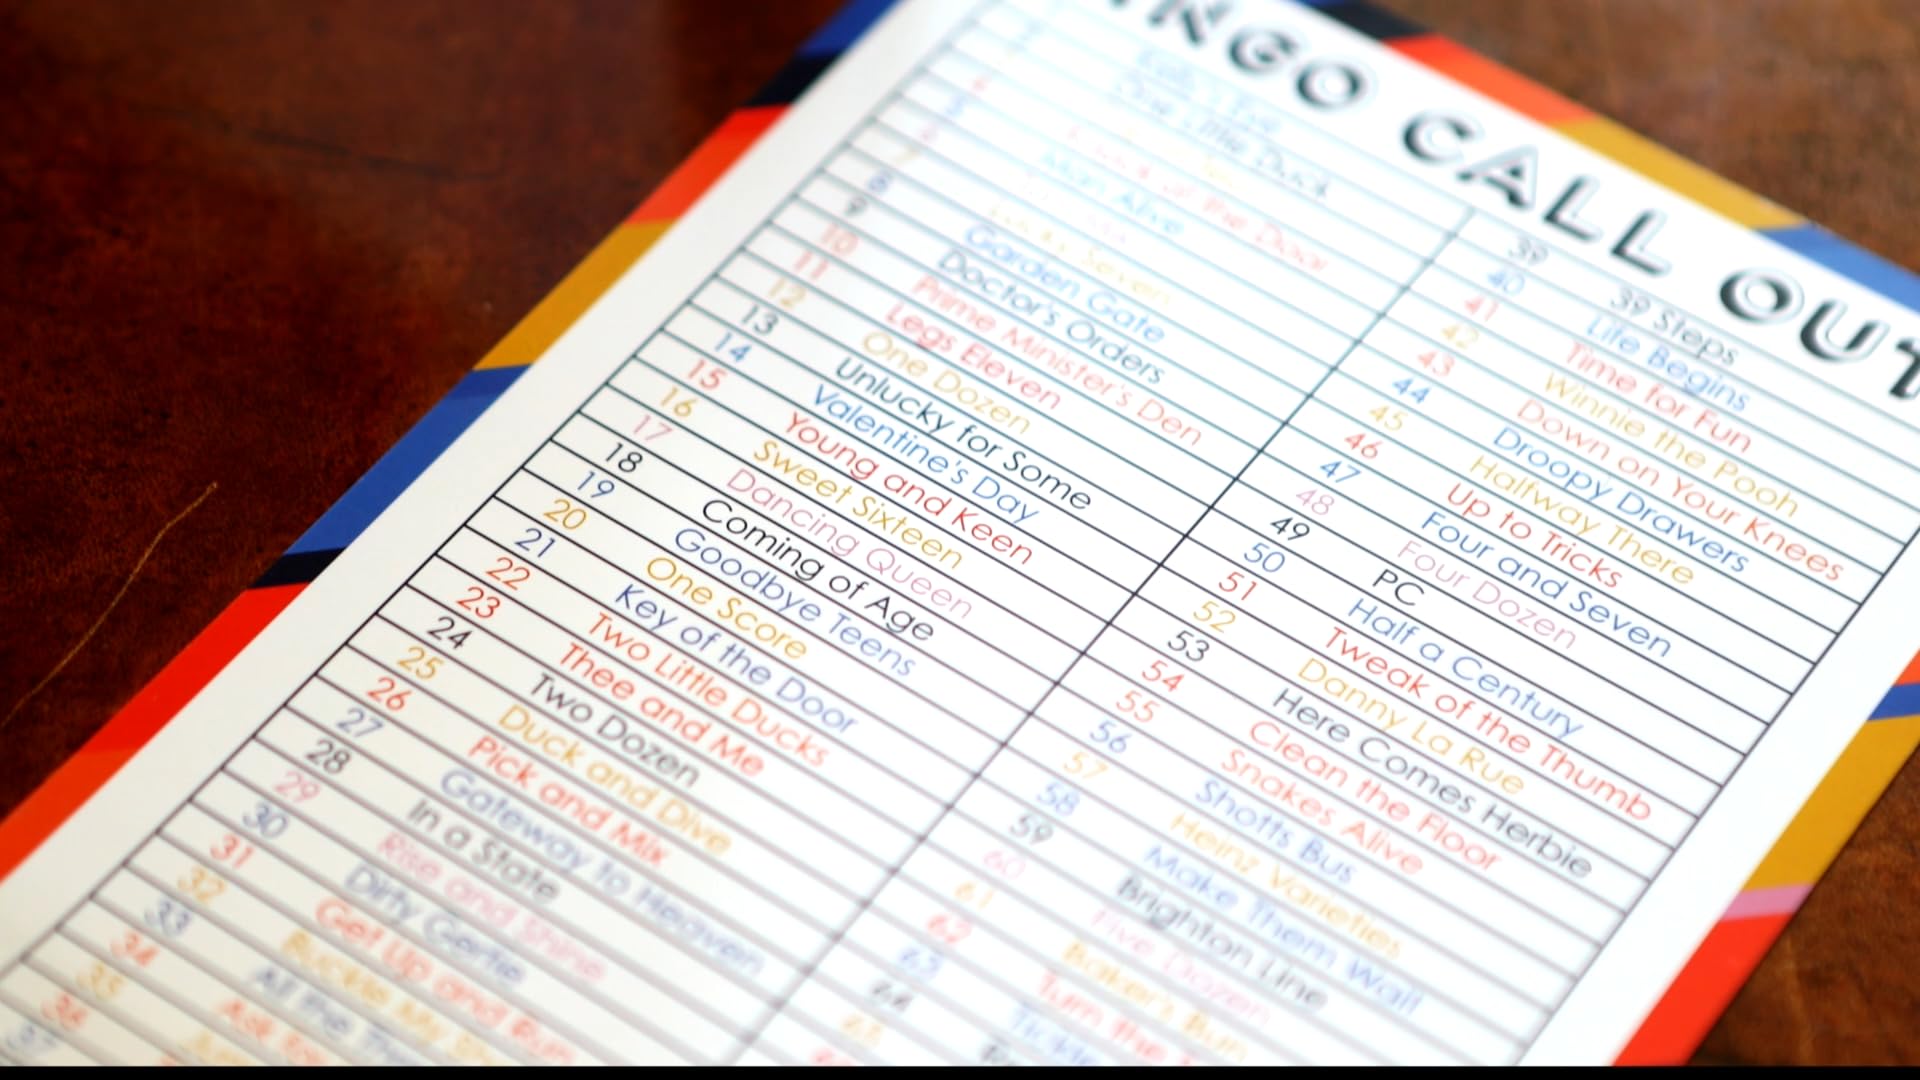 INGO CALL OUT
One Little Duck
at the Door
Man Alive
7 Lucky Seven
8 Garden Gate
9 Doctor's Orders
10 Prime Minister's Den
11 Legs Eleven
12 One Dozen
13 Unlucky for Some
14 Valentine's Day
15 Young and Keen
16 Sweet Sixteen
17 Dancing Queen
18 Coming of Age
19 Goodbye Teens
20 One Score
21 Key of the Door
22 Two Little Ducks
23 Thee and Me
24 Two Dozen
25 Duck and Dive
26 Pick and Mix
27 Gateway to Heaven
28 In a State
29 Rise and Shine
30 Dirty Gertie
31 Get Up and Run
32 Buckle My
33 All the
34 Ask
35
36
37
39 39 Steps
40 Life Begins
41 Time for Fun
42 Winnie the Pooh
43 Down on Your Knees
44 Droopy Drawers
45 Halfway There
46 Up to Tricks
47 Four and Seven
48 Four Dozen
49 PC
50 Half a Century
51 Tweak of the Thumb
52 Danny La Rue
53 Here Comes Herbie
54 Clean the Floor
55 Snakes Alive
56 Shotts Bus
57 Heinz Varieties
58 Make Them Wait
59 Brighton Line
60 Five Dozen
61 Baker's Bun
62 Turn the
63 Tickle
64
65